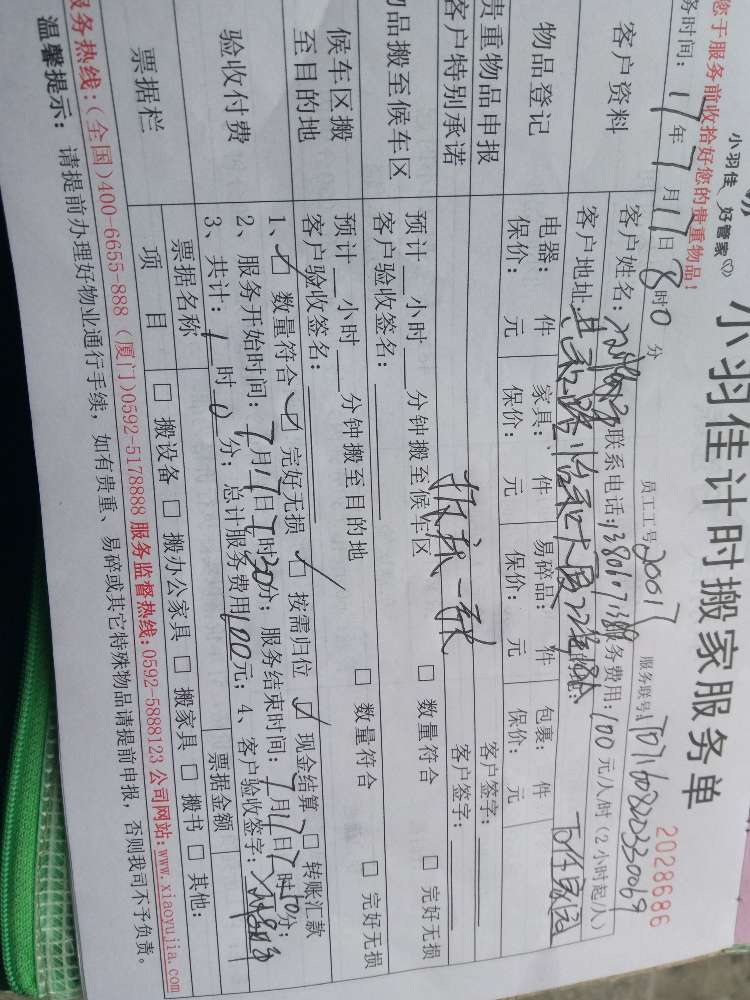 小羽佳 好管家
小羽佳计时搬家服务单
2028686
您于服务前收拾好您的贵重物品!
员工工号 20017 服务联号
务时间: 17年7月17日8时0分
客户资料
客户姓名: 联系电话: 服务费用: 100元/人/时(2小时起/人)
客户地址:
物品登记
电器: 件 家具: 件 易碎品: 件 包裹: 件
保价: 元 保价: 元 保价: 元 保价: 元
贵重物品申报 客户签字:
客户特别承诺 客户签字:
物品搬至候车区
预计 小时 分钟搬至候车区 □ 数量符合 □ 完好无损
客户验收签名:
候车区搬至目的地
预计 小时 分钟搬至目的地 □ 数量符合 □ 完好无损
客户验收签名:
验收付费
1、☑ 数量符合 ☑ 完好无损 ☑ 按需归位 ☑ 现金结算 □ 转账汇款
2、服务开始时间: 7月17日 时30分; 服务结束时间: 7月17日 时 分;
3、共计: 1时0分; 总计服务费用100元; 4、客户验收签字:
票据栏
票据名称 票据金额
项目 □ 搬设备 □ 搬办公家具 □ 搬家具 □ 搬书 □ 其他:
服务热线:(全国)400-6655-888 (厦门)0592-5178888 服务监督热线:0592-5888123 公司网站:www.xiaoyujia.com
温馨提示: 请提前办理好物业通行手续, 如有贵重、易碎或其它特殊物品请提前申报, 否则我司不予负责。